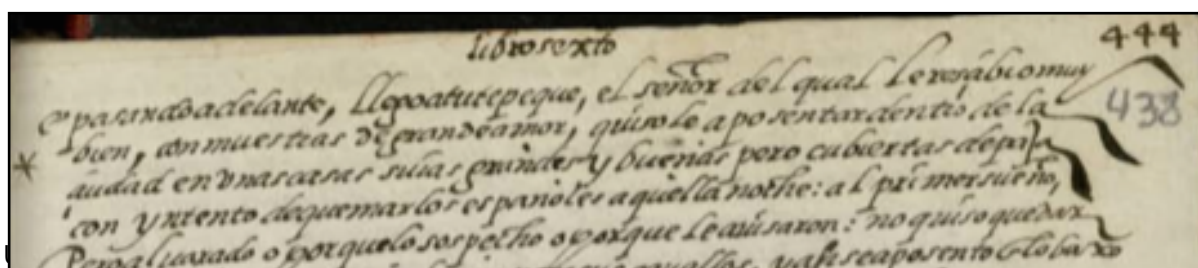 libro sexto
444
438
e pasando adelante, llego a tutepeque, el señor del qual le resçibio muy
bien, con muestras de grande amor, quisole aposentar dentro de la
çiudad en vnas casas suias grandes y buenas pero cubiertas de paja
con yntento de quemar los españoles aquella noche: al primer sueño,
Pero aluarado o porque lo sospecho o porque le auisaron: no quiso quedar
aquellos, y ansi se aposento lo baxo